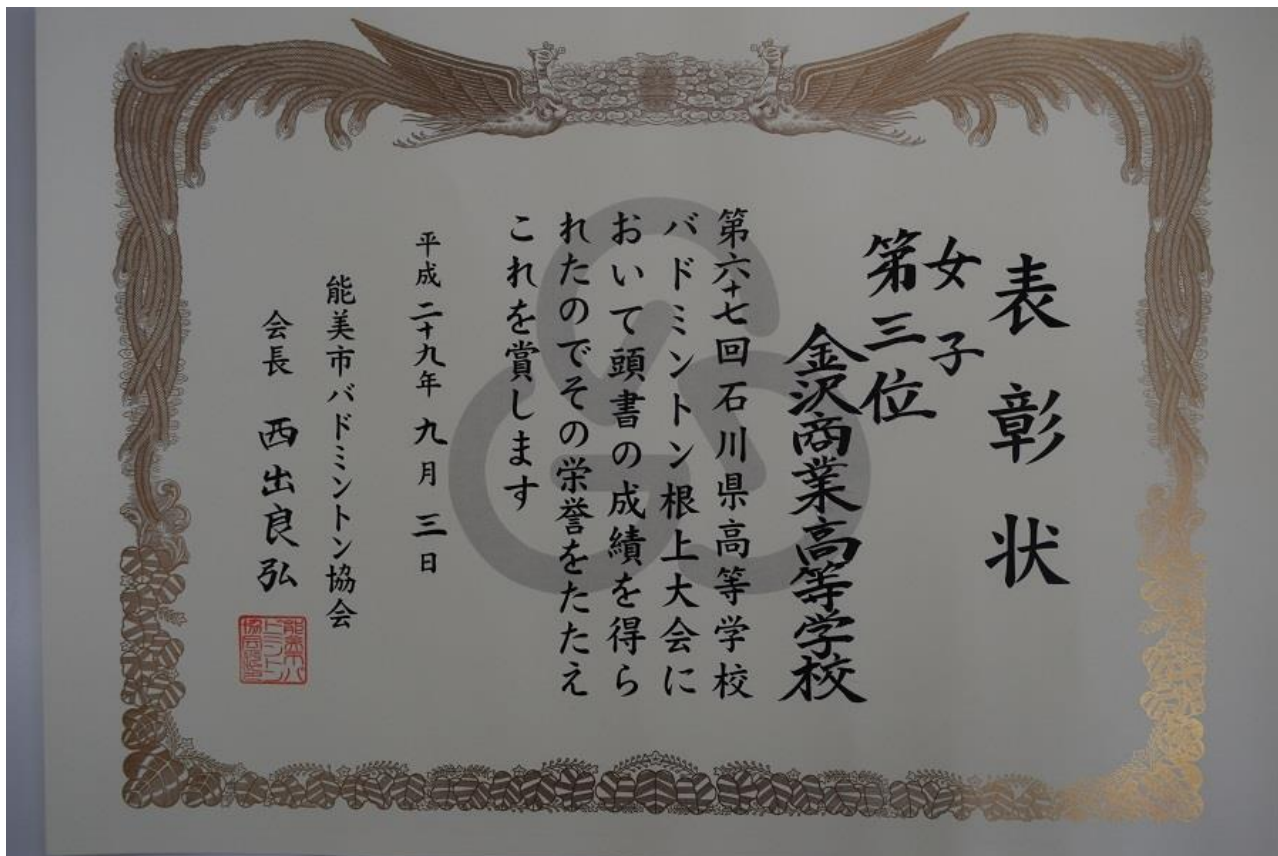 表彰状
女子
第三位
金沢商業高等学校
第六十七回石川県高等学校
バドミントン根上大会に
おいて頭書の成績を得ら
れたのでその栄誉をたたえ
これを賞します
平成二十九年九月三日
能美市バドミントン協会
会長 西出良弘